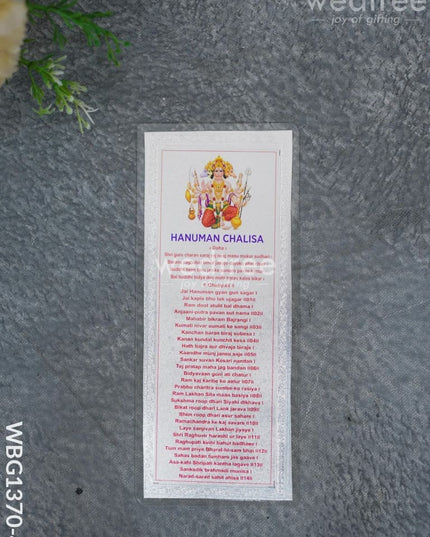 wedtree
joy of gifting
HANUMAN CHALISA
Doha
Shri guru charan saroj raj nij manu mukur sudhari
Chopayai
Jai Hanuman gyan gun sagar I
Jai kapis tihu lok ujagar II01II
Ram doot atulit bal dhama I
Anjaani-putra pavan sut nama II02II
Mahabir bikram Bajrangi I
Kumati nivar sumati ke sangi II03II
Kanchan baran biraj subesa I
Kanan kundal kunchit kesa II04II
Hath bajra aur dhvaja biraje I
Kaandhe munj janeu saje II05II
Sankar suvan Kesari nandan I
Tej pratap maha jag bandan II06II
Bidyavaan guni ati chatur I
Ram kaj karibe ko aatur II07II
Prabhu charitra sunibe ko rasiya I
Ram Lakhan Sita maan basiya II08II
Sukshma roop dhari Siyahi dikhava I
Bikat roop dhari Lank jarava II09II
Bhim roop dhari asur sahare I
Ramachandra ke kaj savare II10II
Laye sanjivan Lakhan jiyaye I
Shri Raghuvir harashi ur laye II11II
Raghupati kinhi bahut badhaee I
Tum mam priya Bharat-hi-sam bhai II12II
Sahas badan tumharo jas gaava I
Asa-kahi Shripati kanth lagave II13II
Sankadik brahmadi munisa I
Narad-sarad sahit ahisa II14II
WBG1370-